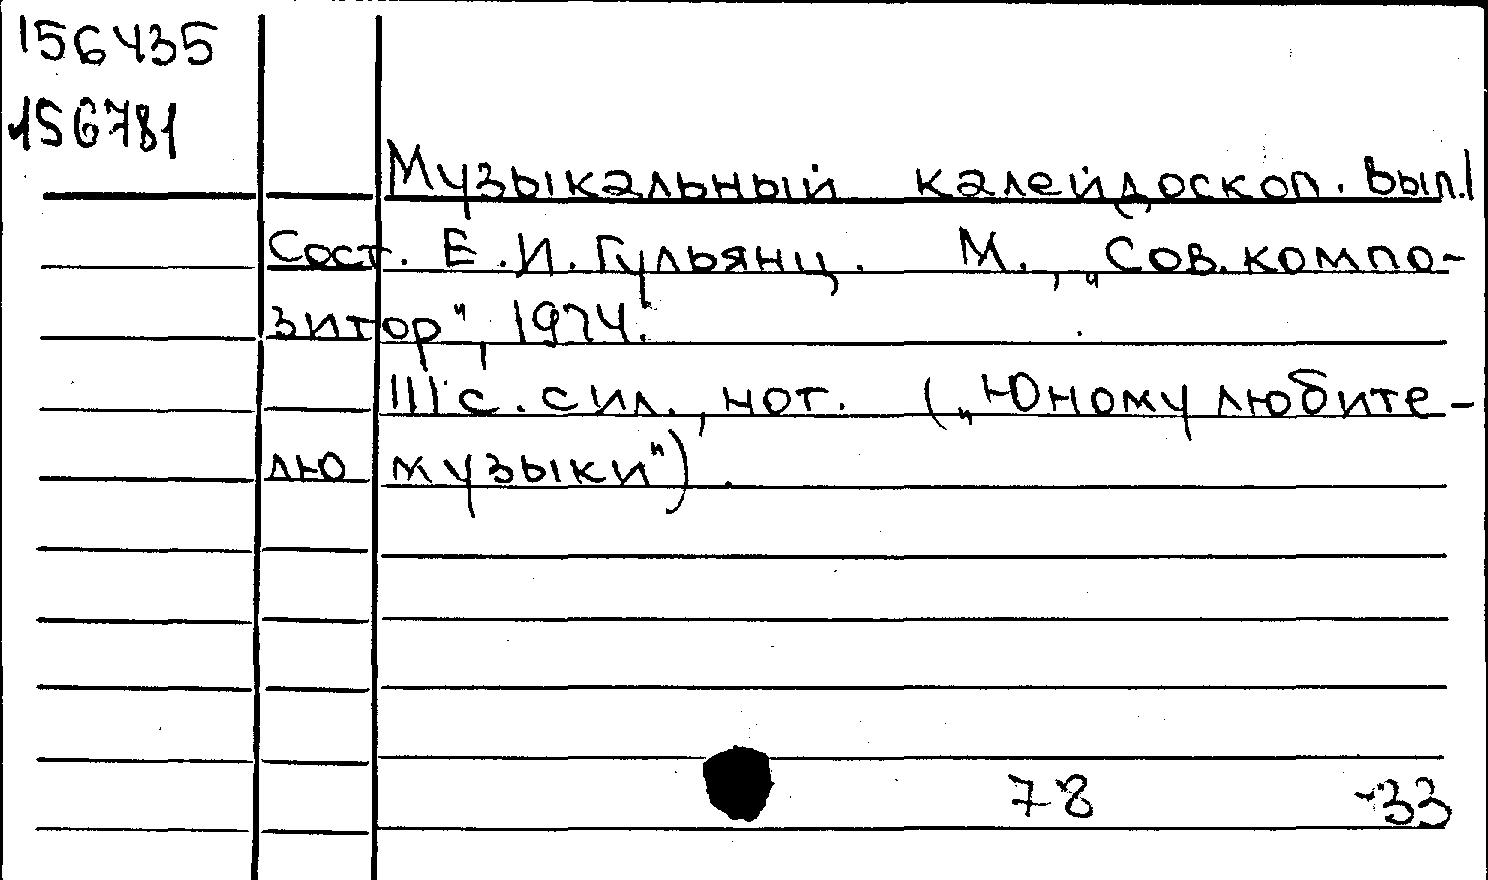 156435
156781
Музыкальный калейдоскоп. Вып.1
Сост. Е.И.Гульянц. М., „Сов. компо-
зитор", 1974.
111 с. с ил., нот. („Юному любите-
лю музыки").
78 -33